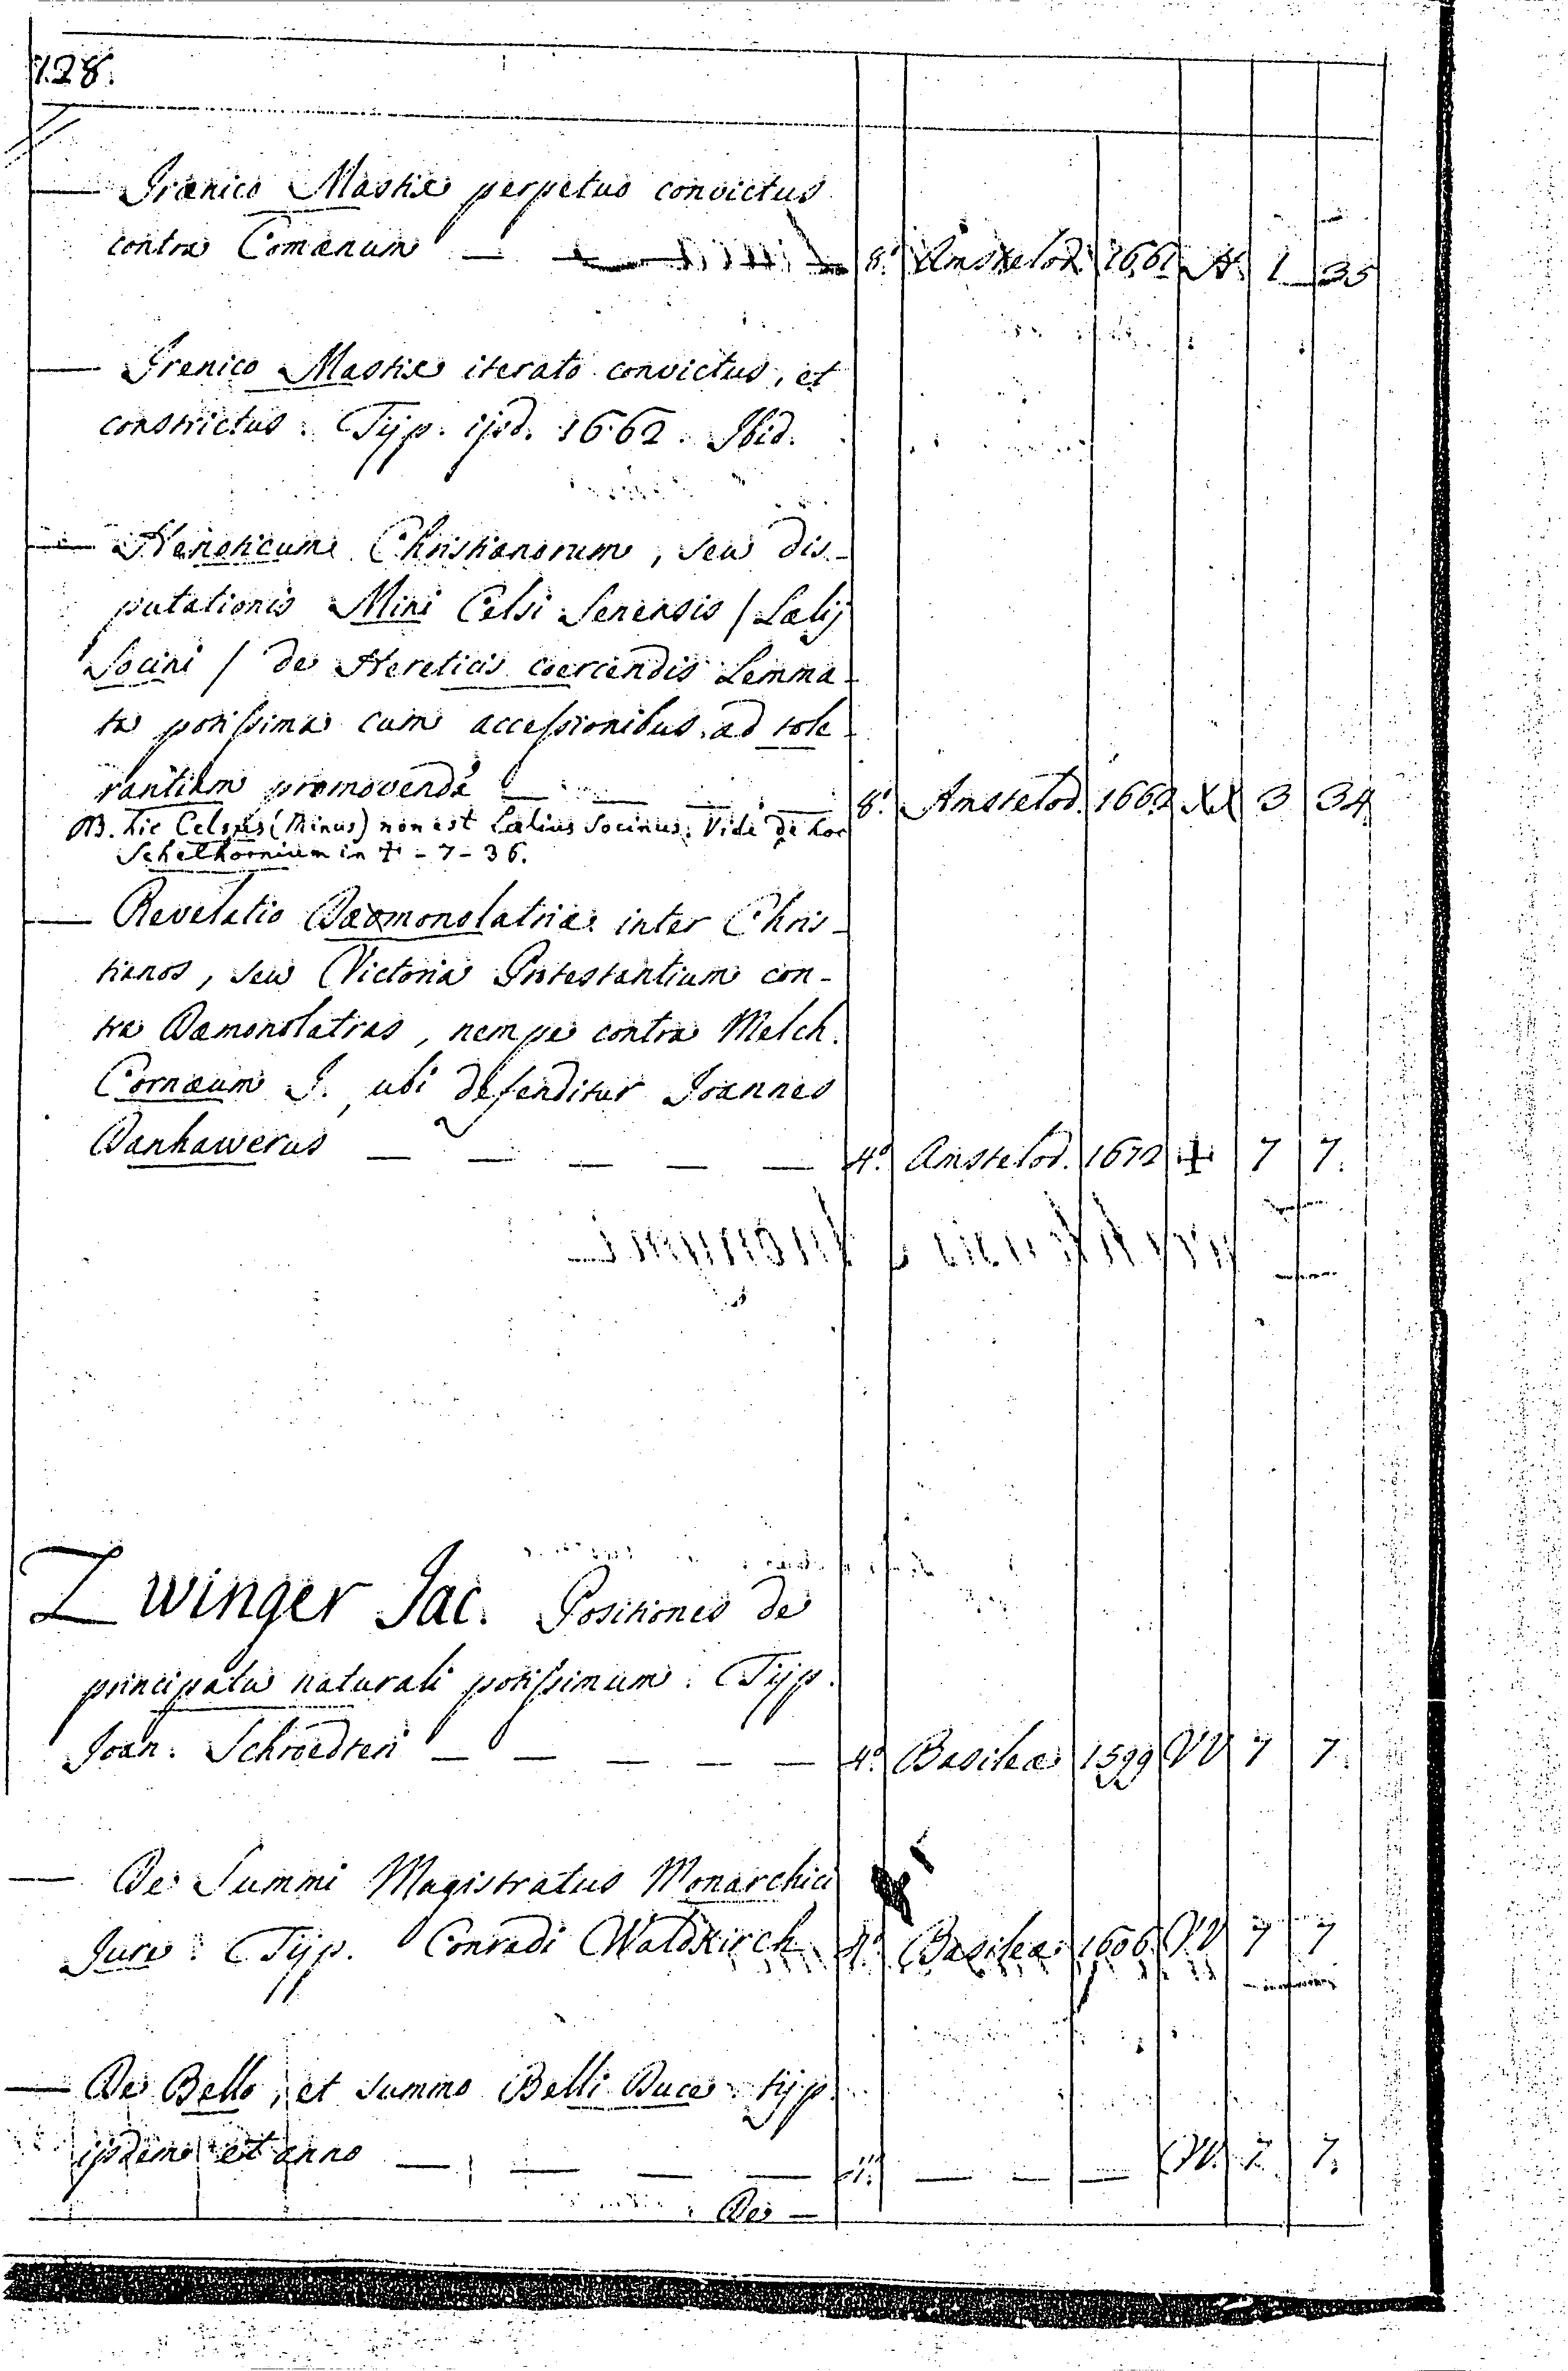 128.
— Irænico Mastix perpetuo convictus
contra Comænum — 8.° Amstelod. 1661 H. 1 35
— Irenico Mastix iterato convictus, et
constrictus. Typ. ijsd. 1662. Ibid.
— Henoticum Christianorum, seu dis-
putationis Mini Celsi Senensis / Lælij
Socini / de Hereticis coercendis Lemma-
ta potissima cum accessionibus ad tole-
rantiam promovendā — — — — 8.° Amstelod. 1662 XX 3 34
NB. hic Celsus (Minus) non est Lælius Socinus. Vide de hoc
Schelhornium in ‡ - 7 - 36.
— Revelatio Dæmonolatriæ inter Chris-
tianos, seu Victoria Protestantium con-
tra Dæmonolatras, nempe contra Melch.
Cornæum J. ubi defenditur Joannes
Danhawerus — — — — — 4.° Amstelod. 1672 ‡ 7 7.
Zwinger Jac. Positiones de
principatu naturali potissimum. Typ.
Joan. Schroedteri — — — — — 4.° Basileæ 1599 VV 7 7.
— De Summi Magistratus Monarchici
Jure. Typ. Conradi Waldkirch 4.° Basileæ 1606. VV 7 7
— De Bello, et summo Belli Duce typ.
ijsdem et anno — — — — 4.° — — — VV. 7 7.
De —